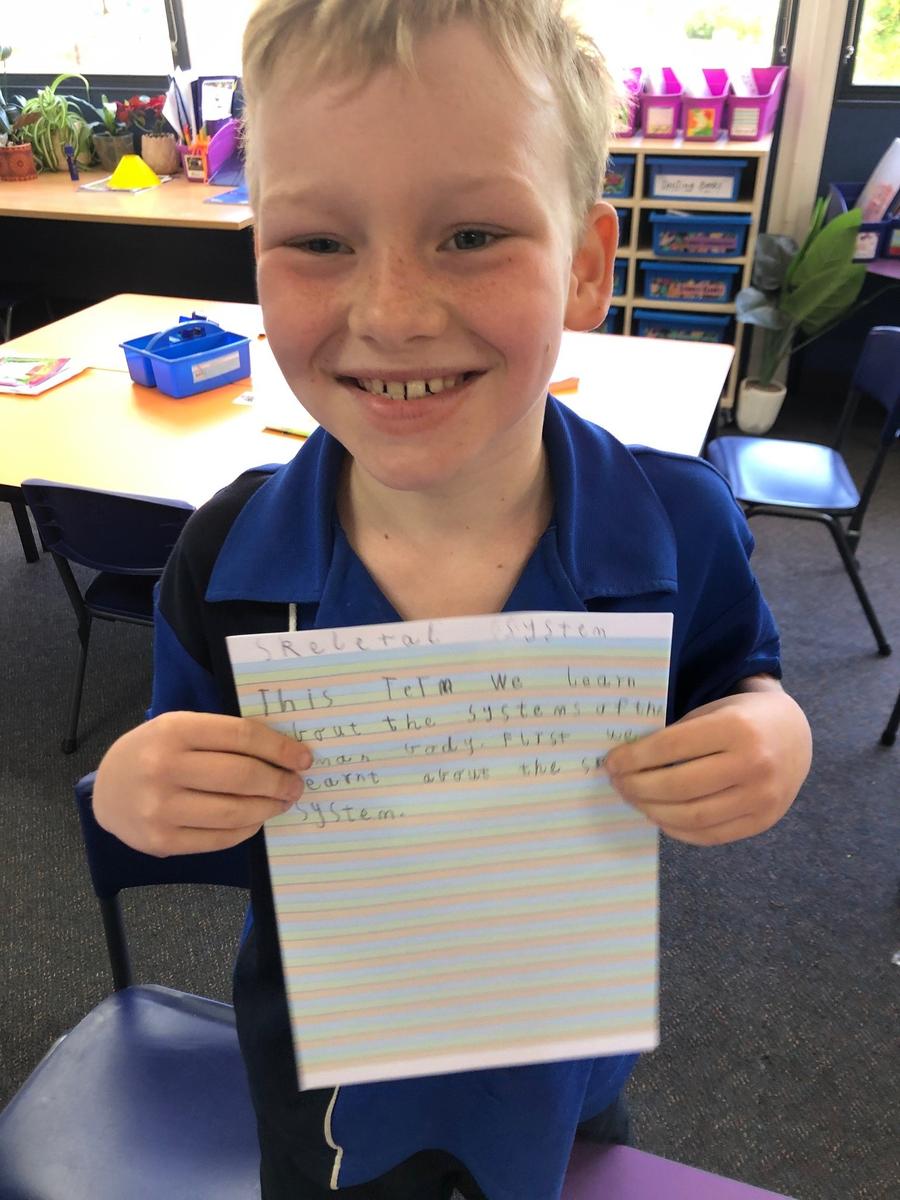 Skeletal System
This Term we learn
about the systems of the
body. First we
learnt about the
system.
Dazzling Books